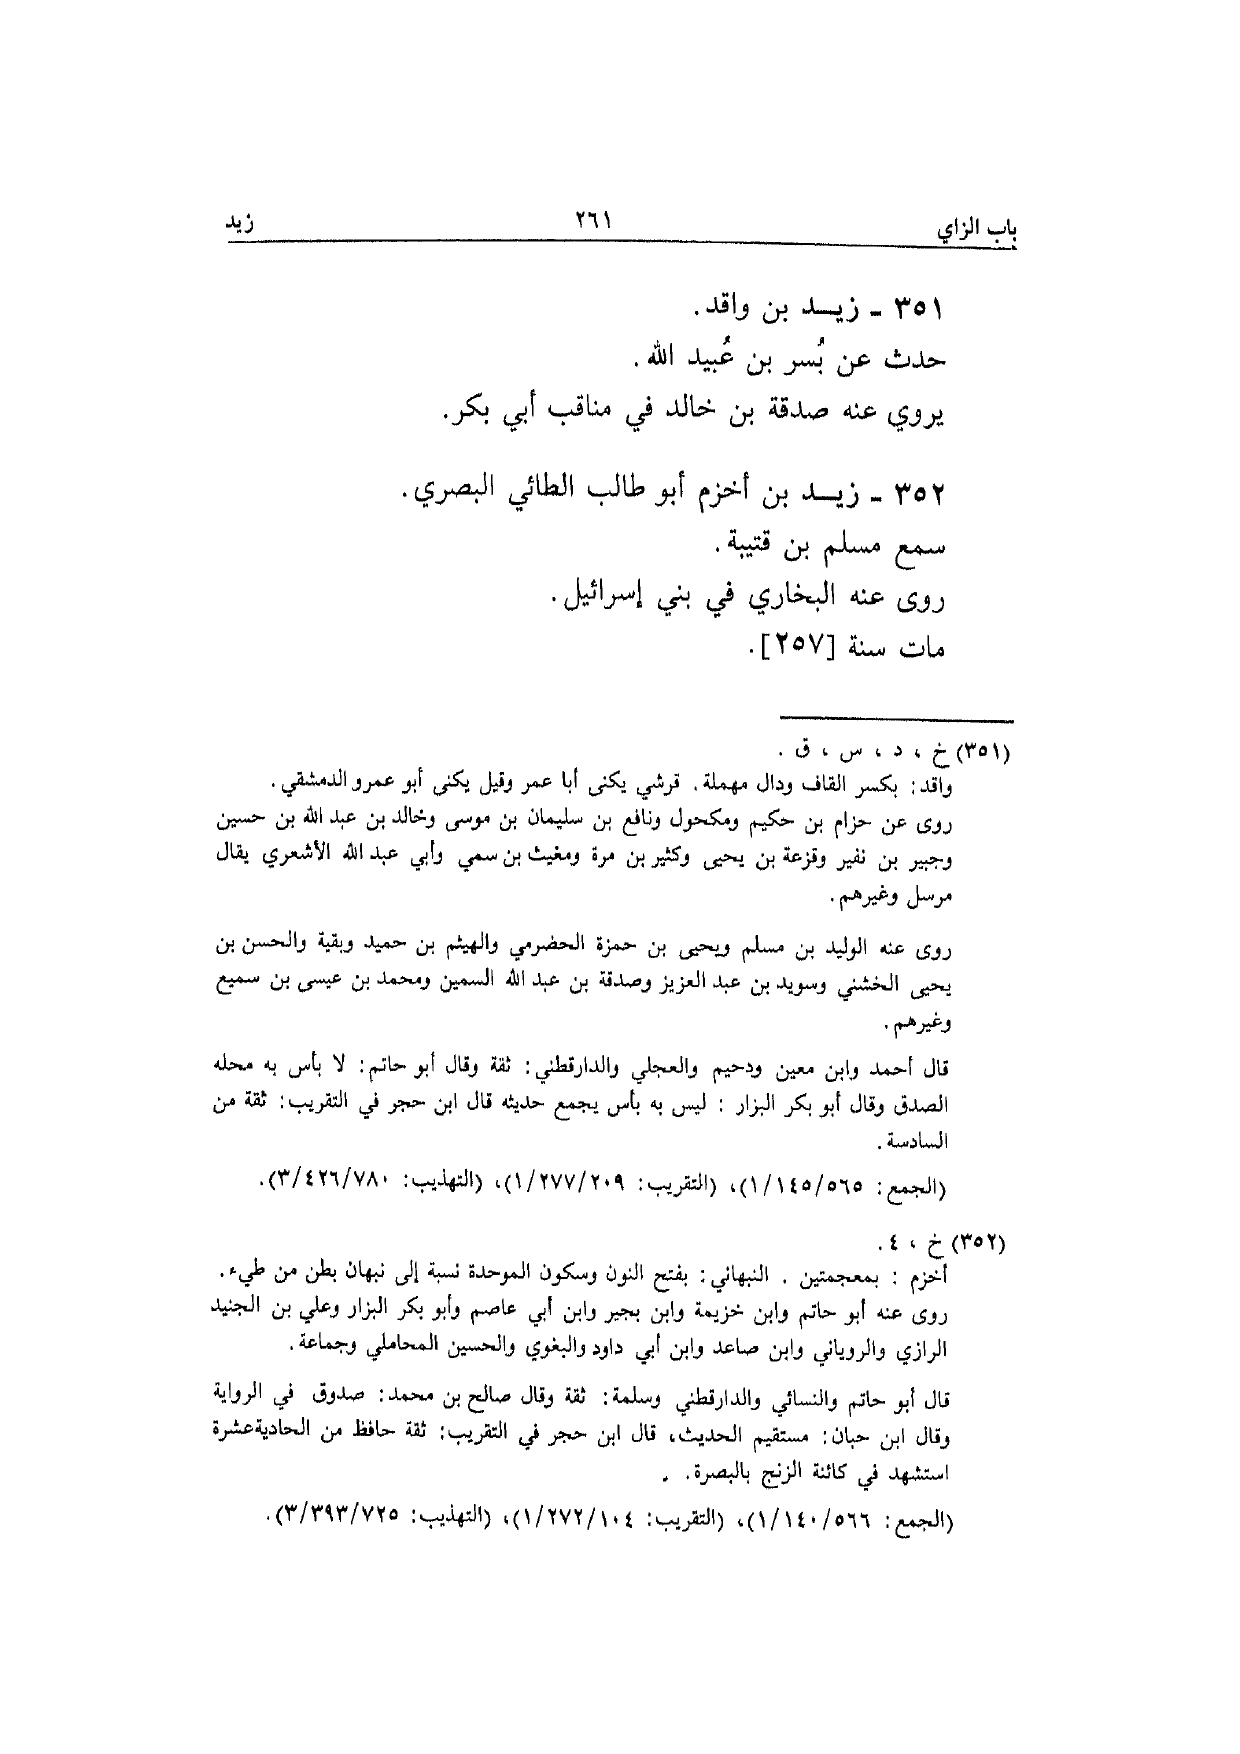 باب الزاي ٢٦١ زيد
٣٥١ - زيـد بن واقد.
حدث عن بُسر بن عُبيد الله.
يروي عنه صدقة بن خالد في مناقب أبي بكر.
٣٥٢ - زيـد بن أخزم أبو طالب الطائي البصري.
سمع مسلم بن قتيبة.
روى عنه البخاري في بني إسرائيل.
مات سنة [٢٥٧].
(٣٥١) خ ، د ، س ، ق .
واقد: بكسر القاف ودال مهملة. قرشي يكنى أبا عمر وقيل يكنى أبو عمرو الدمشقي.
روى عن حزام بن حكيم ومكحول ونافع بن سليمان بن موسى وخالد بن عبد الله بن حسين
وجبير بن نفير وقزعة بن يحيى وكثير بن مرة ومغيث بن سمي وأبي عبد الله الأشعري يقال
مرسل وغيرهم.
روى عنه الوليد بن مسلم ويحيى بن حمزة الحضرمي والهيثم بن حميد وبقية والحسن بن
يحيى الخشني وسويد بن عبد العزيز وصدقة بن عبد الله السمين ومحمد بن عيسى بن سميع
وغيرهم.
قال أحمد وابن معين ودحيم والعجلي والدارقطني: ثقة وقال أبو حاتم: لا بأس به محله
الصدق وقال أبو بكر البزار : ليس به بأس يجمع حديثه قال ابن حجر في التقريب: ثقة من
السادسة.
(الجمع: ١/١٤٥/٥٦٥)، (التقريب: ١/٢٧٧/٢٠٩)، (التهذيب: ٣/٤٢٦/٧٨٠).
(٣٥٢) خ ، ٤ .
أخزم : بمعجمتين . النبهاني: بفتح النون وسكون الموحدة نسبة إلى نبهان بطن من طيء.
روى عنه أبو حاتم وابن خزيمة وابن بجير وابن أبي عاصم وأبو بكر البزار وعلي بن الجنيد
الرازي والروياني وابن صاعد وابن أبي داود والبغوي والحسين المحاملي وجماعة.
قال أبو حاتم والنسائي والدارقطني وسلمة: ثقة وقال صالح بن محمد: صدوق في الرواية
وقال ابن حبان: مستقيم الحديث، قال ابن حجر في التقريب: ثقة حافظ من الحادية عشرة
استشهد في كائنة الزنج بالبصرة. .
(الجمع: ١/١٤٠/٥٦٦)، (التقريب: ١/٢٧٢/١٠٤)، (التهذيب: ٣/٣٩٣/٧٢٥).